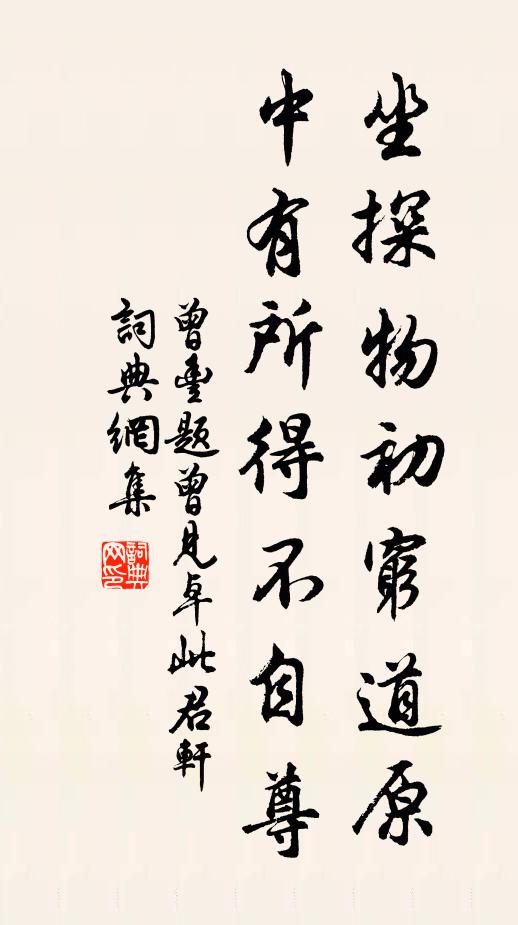 坐探物初窮道原
中有所得不自尊
曾豊題曾見卓此君軒
詞典網集
詞典网印